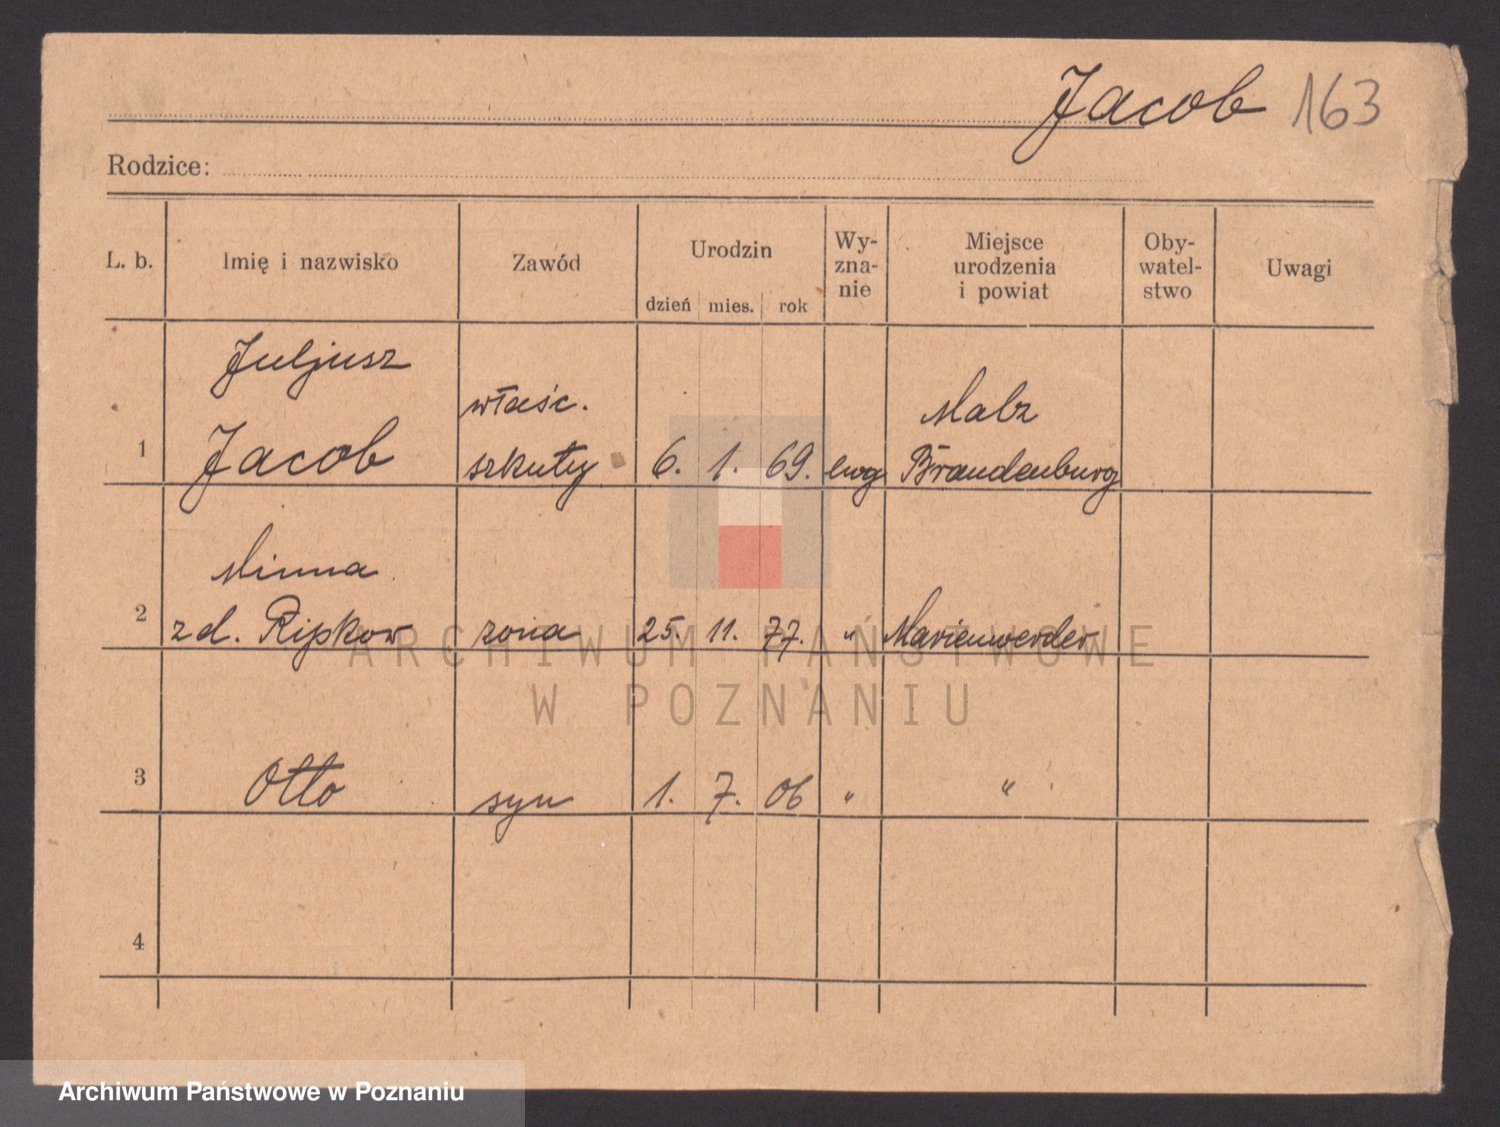 Jacob 163
Rodzice:
L. b. Imię i nazwisko Zawód Urodzin dzień mies. rok Wy- zna- nie Miejsce urodzenia i powiat Oby- watel- stwo Uwagi
Juljusz
właśc. Malz
1 Jacob szkuty 6. 1. 69. ewg Brandenburg
Minna
2 z d. Ripkow żona 25. 11. 77. " Marienwerder
3 Otto syn 1. 7. 06 " "
4
ARCHIWUM PAŃSTWOWE
W POZNANIU
Archiwum Państwowe w Poznaniu